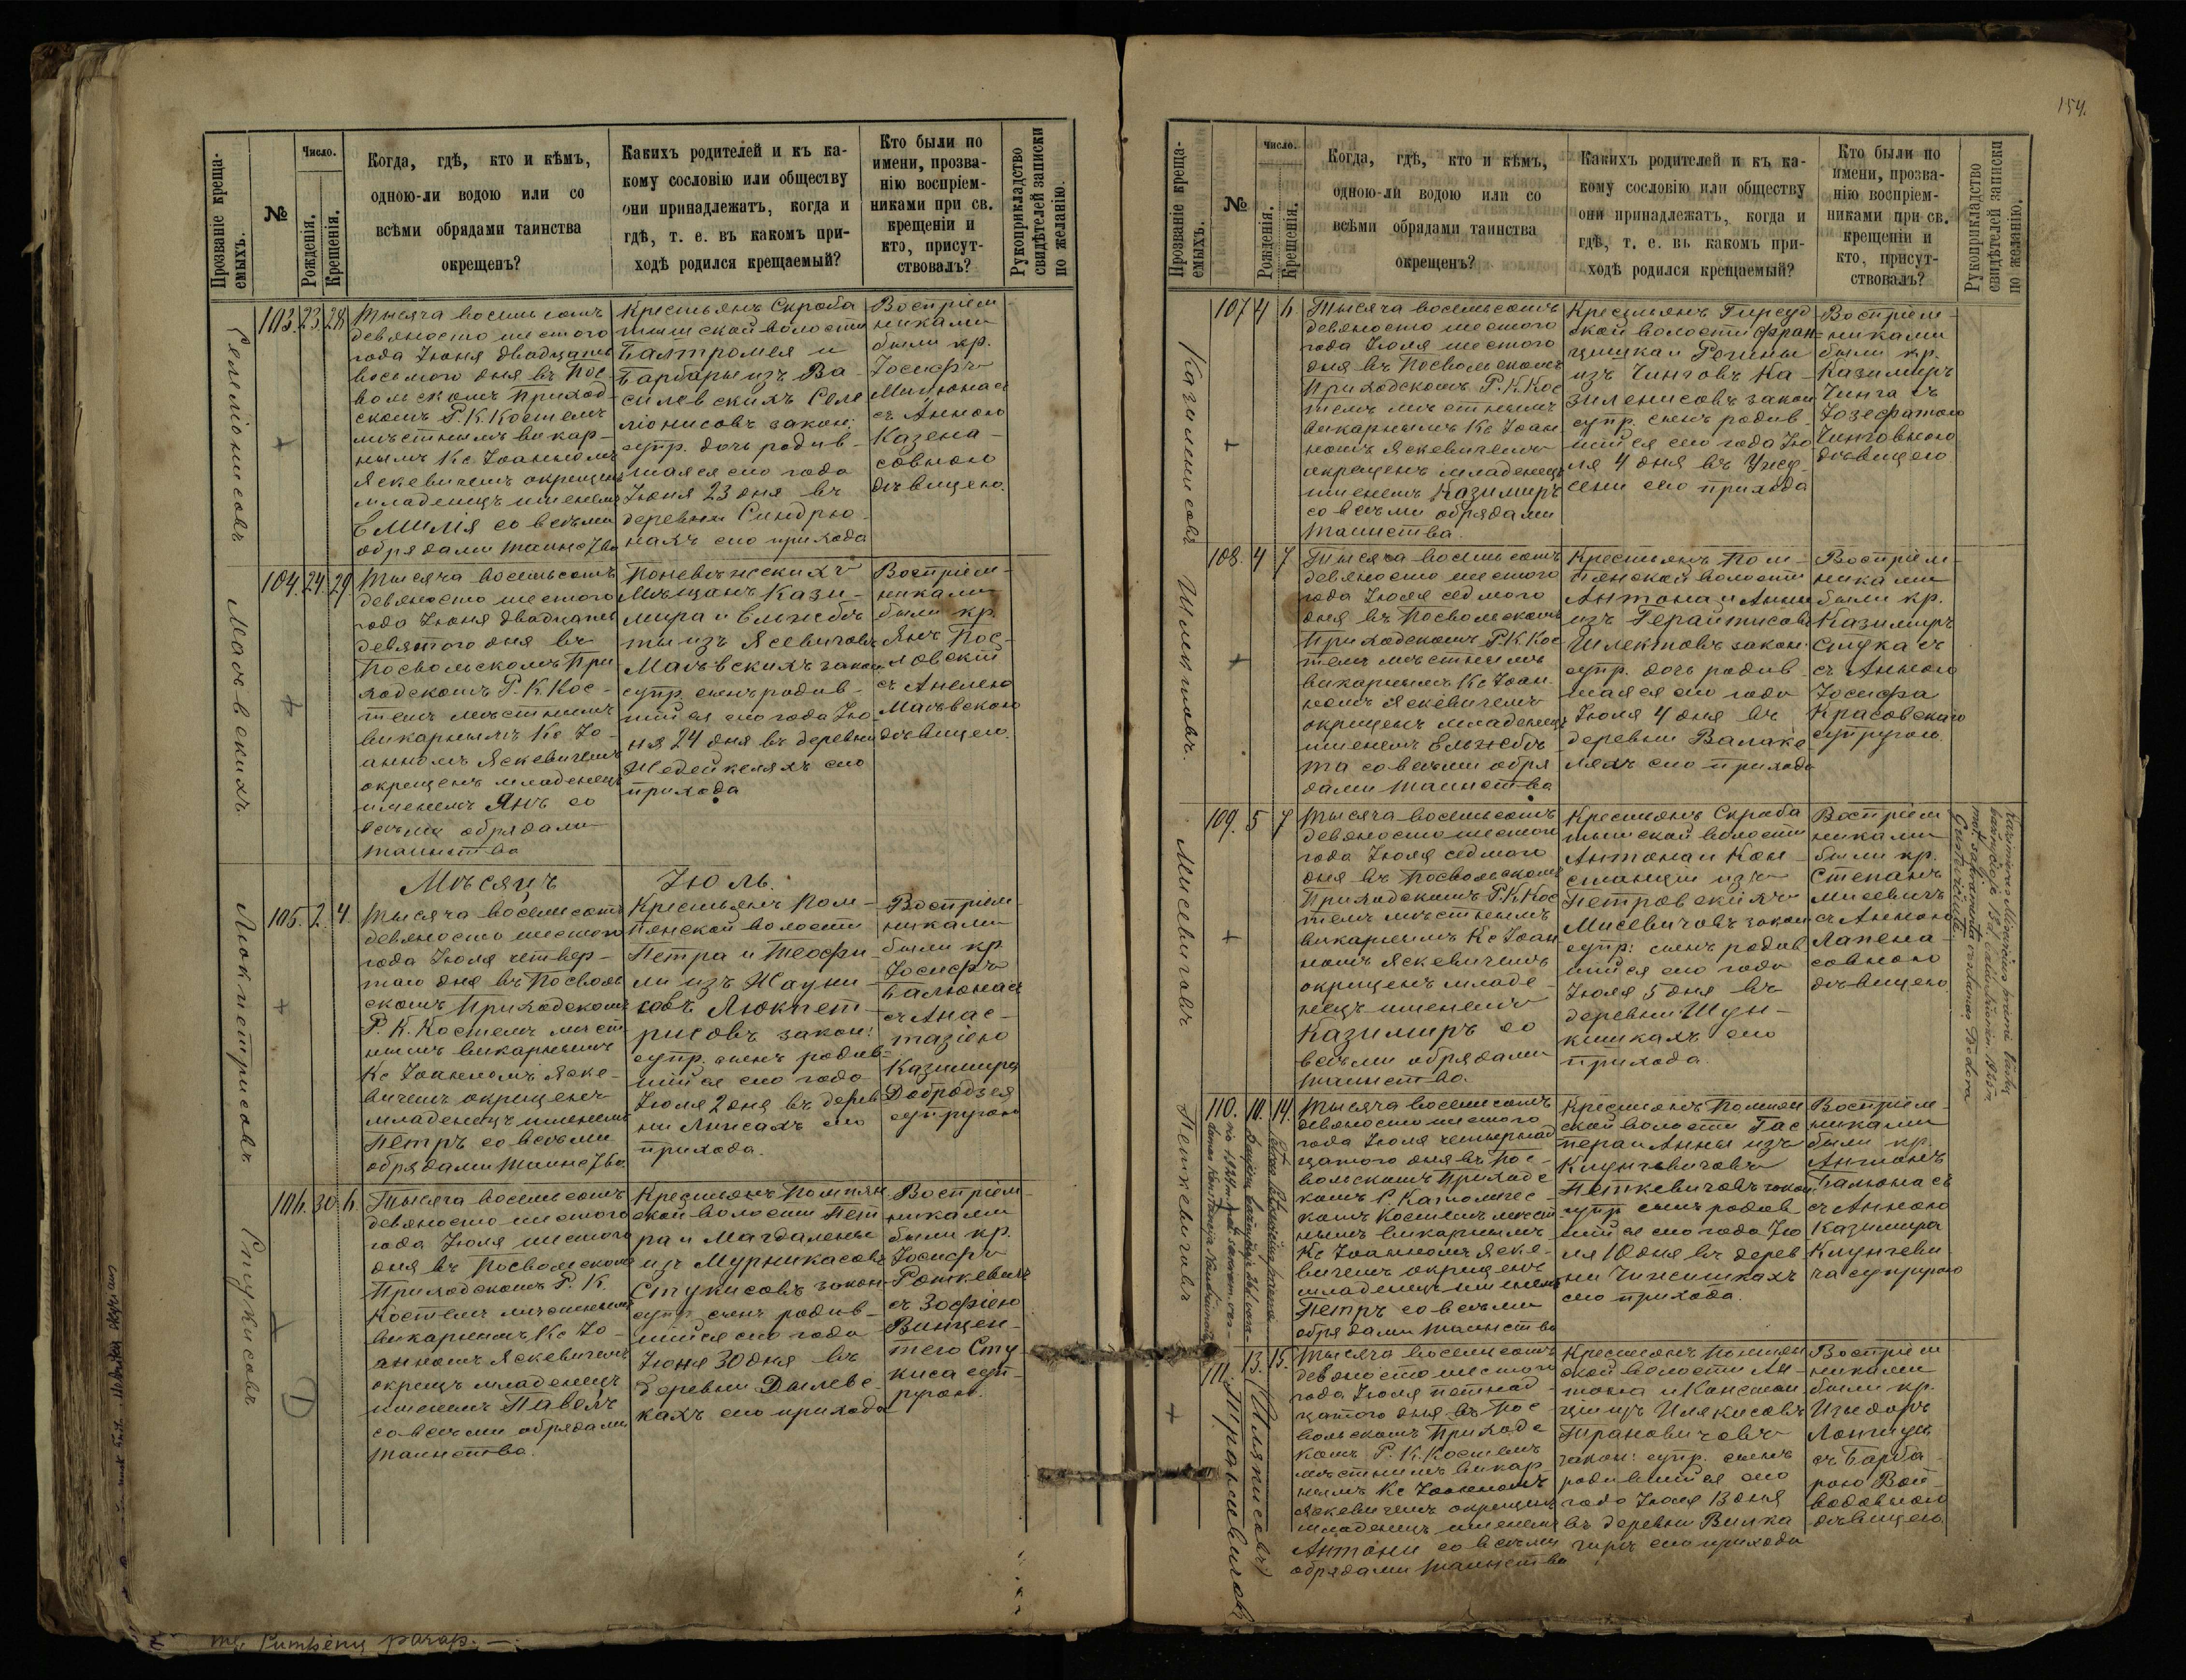 154.
Прозваніе крещаемыхъ.
№
Число.
Рожденія.
Крещенія.
Когда, гдѣ, кто и кѣмъ,
одною-ли водою или со
всѣми обрядами таинства
окрещенъ?
Какихъ родителей и къ ка-
кому сословію или обществу
они принадлежатъ, когда и
гдѣ, т. е. въ какомъ при-
ходѣ родился крещаемый?
Кто были по
имени, прозва-
нію воспріем-
никами при св.
крещеніи и
кто, присут-
ствовалъ?
Рукоприкладство
свидѣтелей записки
по желанію.
103. 23. 28
Тысяча восемьсотъ
девяносто шестого
года Іюня двадцать
восьмого дня въ Пос-
вольскомъ Приход-
скомъ Р. К. Костелѣ
мѣстнымъ викар-
нымъ Кс Іоанномъ
Яскевичемъ окрещенъ
младенецъ именемъ
Емилія со всѣми
обрядами таинства
Крестьянъ Скроба
тишской волости
Балтромея и
Барбары изъ Ва-
силевскихъ Селе
ліонисовъ закон:
супр. дочь родив-
шаяся сего года
Іюня 23 дня въ
деревни Синдрю-
нахъ сего прихода
Воспріем-
никами
были кр.
Іосифъ
Милюнасъ
съ Анною
Казена-
совною
дѣвицею.
104. 24. 29
Тысяча восемьсотъ
девяносто шестого
года Іюня двадцать
девятого дня въ
Посвольскомъ При
ходскомъ Р. К. Кос-
телѣ мѣстнымъ
викарнымъ Кс Іо-
анномъ Яскевичемъ
окрещенъ младенецъ
именемъ Янъ со
всѣми обрядами
таинства
Поневѣжскихъ
Мѣщанъ Кази-
мира и Ельжбѣ
ты изъ Ясевичовъ
Малѣвскихъ закон
супр. сынъ родив-
шійся сего года Ію-
ня 24 дня въ деревни
Шедейкеляхъ сего
прихода
Воспріем-
никами
были кр.
Янъ Пос-
ловскій
съ Анелею
Малѣвскою
дѣвицею.
Малѣвскихъ
Мѣсяцъ Іюль.
105. 2. 4
Тысяча восемьсотъ
девяносто шестого
года Іюля четвер-
таго дня въ Посволь
скомъ Приходскомъ
Р. К. Костелѣ мѣст
нымъ викарнымъ
Кс Іоанномъ Яске-
вичемъ окрещенъ
младенецъ именемъ
Петръ со всѣми
обрядами таинства
Крестьянъ Пом-
пянской волости
Петра и Теофи-
ли изъ Жауни
совъ Люкпет-
рисовъ закон:
супр. сынъ родив-
шійся сего года
Іюля 2 дня въ дерев
ни Лиисахъ сего
прихода.
Воспріем-
никами
были кр
Іосифъ
Балюнасъ
съ Анас-
тазіею
Казимира
Добродзея
супругою
Люкпетрисовъ
106. 30 6.
Тысяча восемьсотъ
девяносто шестого
года Іюля шестого
дня въ Посвольскомъ
Приходскомъ Р. К.
Костелѣ мѣстнымъ
викарнымъ Кс Іо-
анномъ Яскевичемъ
окрещъ младенецъ
именемъ Павелъ
со всѣми обрядами
таинства.
Крестьянъ Помпян
ской волости Пет
ра и Магдалены
изъ Мурникасовъ
Стукисовъ закон
супр. сынъ родив-
шійся сего года
Іюня 30 дня въ
деревни Дылевс-
кахъ сего прихода
Воспріем-
никами
были кр.
Іосифъ
Роткевичъ
съ Зофіею
Винцен-
тего Сту
киса суп-
ругою.
Стукисовъ
Pumpėnų parap.
Прозваніе крещаемыхъ.
№
Число.
Рожденія.
Крещенія.
Когда, гдѣ, кто и кѣмъ,
одною-ли водою или со
всѣми обрядами таинства
окрещенъ?
Какихъ родителей и къ ка-
кому сословію или обществу
они принадлежатъ, когда и
гдѣ, т. е. въ какомъ при-
ходѣ родился крещаемый?
Кто были по
имени, прозва-
нію воспріем-
никами при св.
крещеніи и
кто, присут-
ствовалъ?
Рукоприкладство
свидѣтелей записки
по желанію.
107 4 6.
Тысяча восемьсотъ
девяносто шестого
года Іюля шестого
дня въ Посвольскомъ
Приходскомъ Р. К. Кос
телѣ мѣстнымъ
викарнымъ Кс Іоан
номъ Яскевичемъ
окрещенъ младенецъ
именемъ Казимиръ
со всѣми обрядами
таинства.
Крестьянъ Гирсуд
ской волости Фран-
цишка и Рогины
изъ Чинговъ Ка-
зиленисовъ закон
супр. сынъ родив-
шійся сего года Ію
ля 4 дня въ
сего прихода
Воспріем-
никами
были кр.
Казимиръ
Чинга съ
Іозефатою
Чинговною
дѣвицею
Казиленисовъ
108. 4 7
Тысяча восемьсотъ
девяносто шестого
года Іюля седмого
дня въ Посвольскомъ
Приходскомъ Р. К. Кос
телѣ мѣстнымъ
викарнымъ Кс Іоан-
номъ Яскевичемъ
окрещенъ младенецъ
именемъ Ельжбѣ
та со всѣми обря
дами таинства
Крестьянъ Пом-
пянской волости
Антона и Анны
изъ Герайтисовъ
Шлектовъ закон
супр. дочь родив-
шаяся сего года
Іюля 4 дня въ
деревни Валаке
ляхъ сего прихода
Воспріем-
никами
были кр.
Казимиръ
Стука съ
съ Анною
Іосифа
Красовскаго
супругою.
Шлектовъ.
109. 5 7
Тысяча восемьсотъ
девяносто шестого
года Іюля седмого
дня въ Посвольскомъ
Приходскомъ Р. К. Кос
телѣ мѣстнымъ
викарнымъ Кс Іоан
номъ Яскевичемъ
окрещенъ младе-
нецъ именемъ
Казимиръ со
всѣми обрядами
таинства.
Крестьянъ Скроба
тишской волости
Антона и Кон-
станціи изъ
Петровскихъ
Мисевичовъ закон
супр: сынъ родив
шійся сего года
Іюля 5 дня въ
деревни Шун-
кишкахъ сего
прихода.
Воспріем
никами
были кр.
Степанъ
Мисевичъ
съ Анною
Лапена-
совною
дѣвицею
Мисевичовъ
110. 10. 14.
Тысяча восемьсотъ
девяносто шестого
года Іюля четырнад
цатого дня въ Пос-
вольскомъ Приходс
комъ Р. Католичес-
комъ Костелѣ мѣст
нымъ викарнымъ
Кс Іоанномъ Яске-
вичемъ окрещенъ
младенецъ именемъ
Петръ со всѣми
обрядами таинства
Крестьянъ Помпян
ской волости Гас
пера и Анны изъ
Клунгевичовъ
Петкевичовъ закон
супр сынъ родив
шійся сего года Ію
ля 10 дня въ дерев
ни Чижишкахъ
сего прихода.
Воспріем-
никами
были кр.
Антонъ
Бальонасъ
съ Анною
Казимира
Клунгеви
ча супругою
Петкевичовъ
111. 13. 15.
Тысяча восемьсотъ
девяносто шестого
года Іюля пятнад-
цатого дня въ Пос-
вольскомъ Приходс
комъ Р. К. Костелѣ
мѣстнымъ викар-
нымъ Кс Іоанномъ
Яскевичемъ окрещенъ
младенецъ именемъ
Антони со всѣми
обрядами таинства
Крестьянъ Помпян
ской волости Ан-
тона и Констан
ціи изъ Илякисовъ
Трановичовъ
закон: супр. сынъ
родившійся сего
года Іюля 13 дня
въ деревни Вилка
сего прихода
Воспріем
никами
были кр.
Изыдоръ
съ Барба
рою Вой-
водовною
дѣвицею